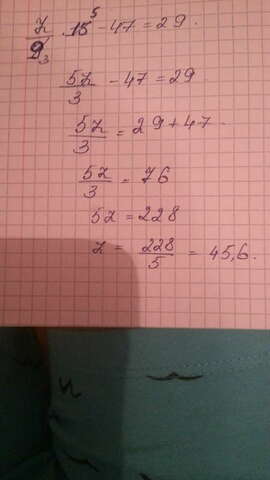 z/9₃ · 15⁵ - 47 = 29.
5z/3 - 47 = 29
5z/3 = 29 + 47.
5z/3 = 76
5z = 228
z = 228/5 = 45,6.